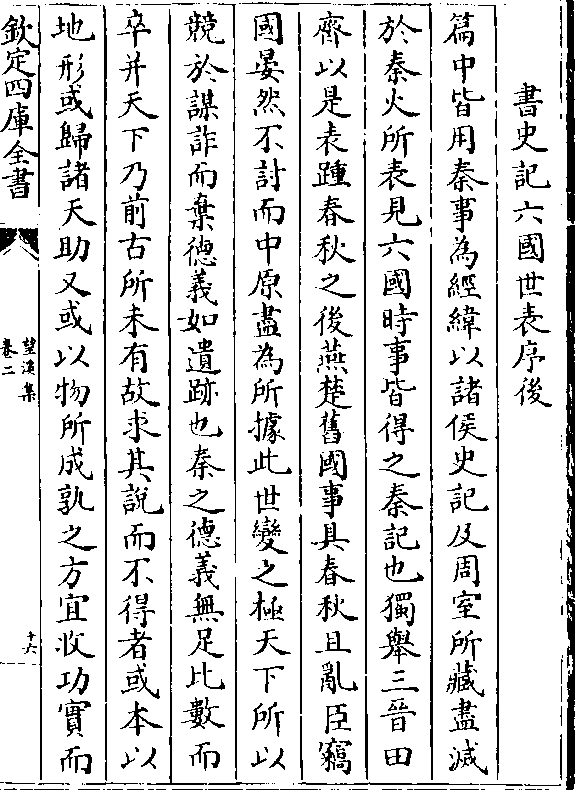 書史記六國世表序後
篇中皆用秦事為經緯以諸侯史記及周室所藏盡滅
於秦火所表見六國時事皆得之秦記也獨舉三晉田
齊以是表踵春秋之後燕楚舊國事具春秋且亂臣竊
國晏然不討而中原盡為所據此世變之極天下所以
競於謀詐而棄德義如遺跡也秦之德義無足比數而
卒并天下乃前古所未有故求其說而不得者或本以
地形或歸諸天助又或以物所成孰之方宜收功實而
欽定四庫全書
望溪集
卷二
十六